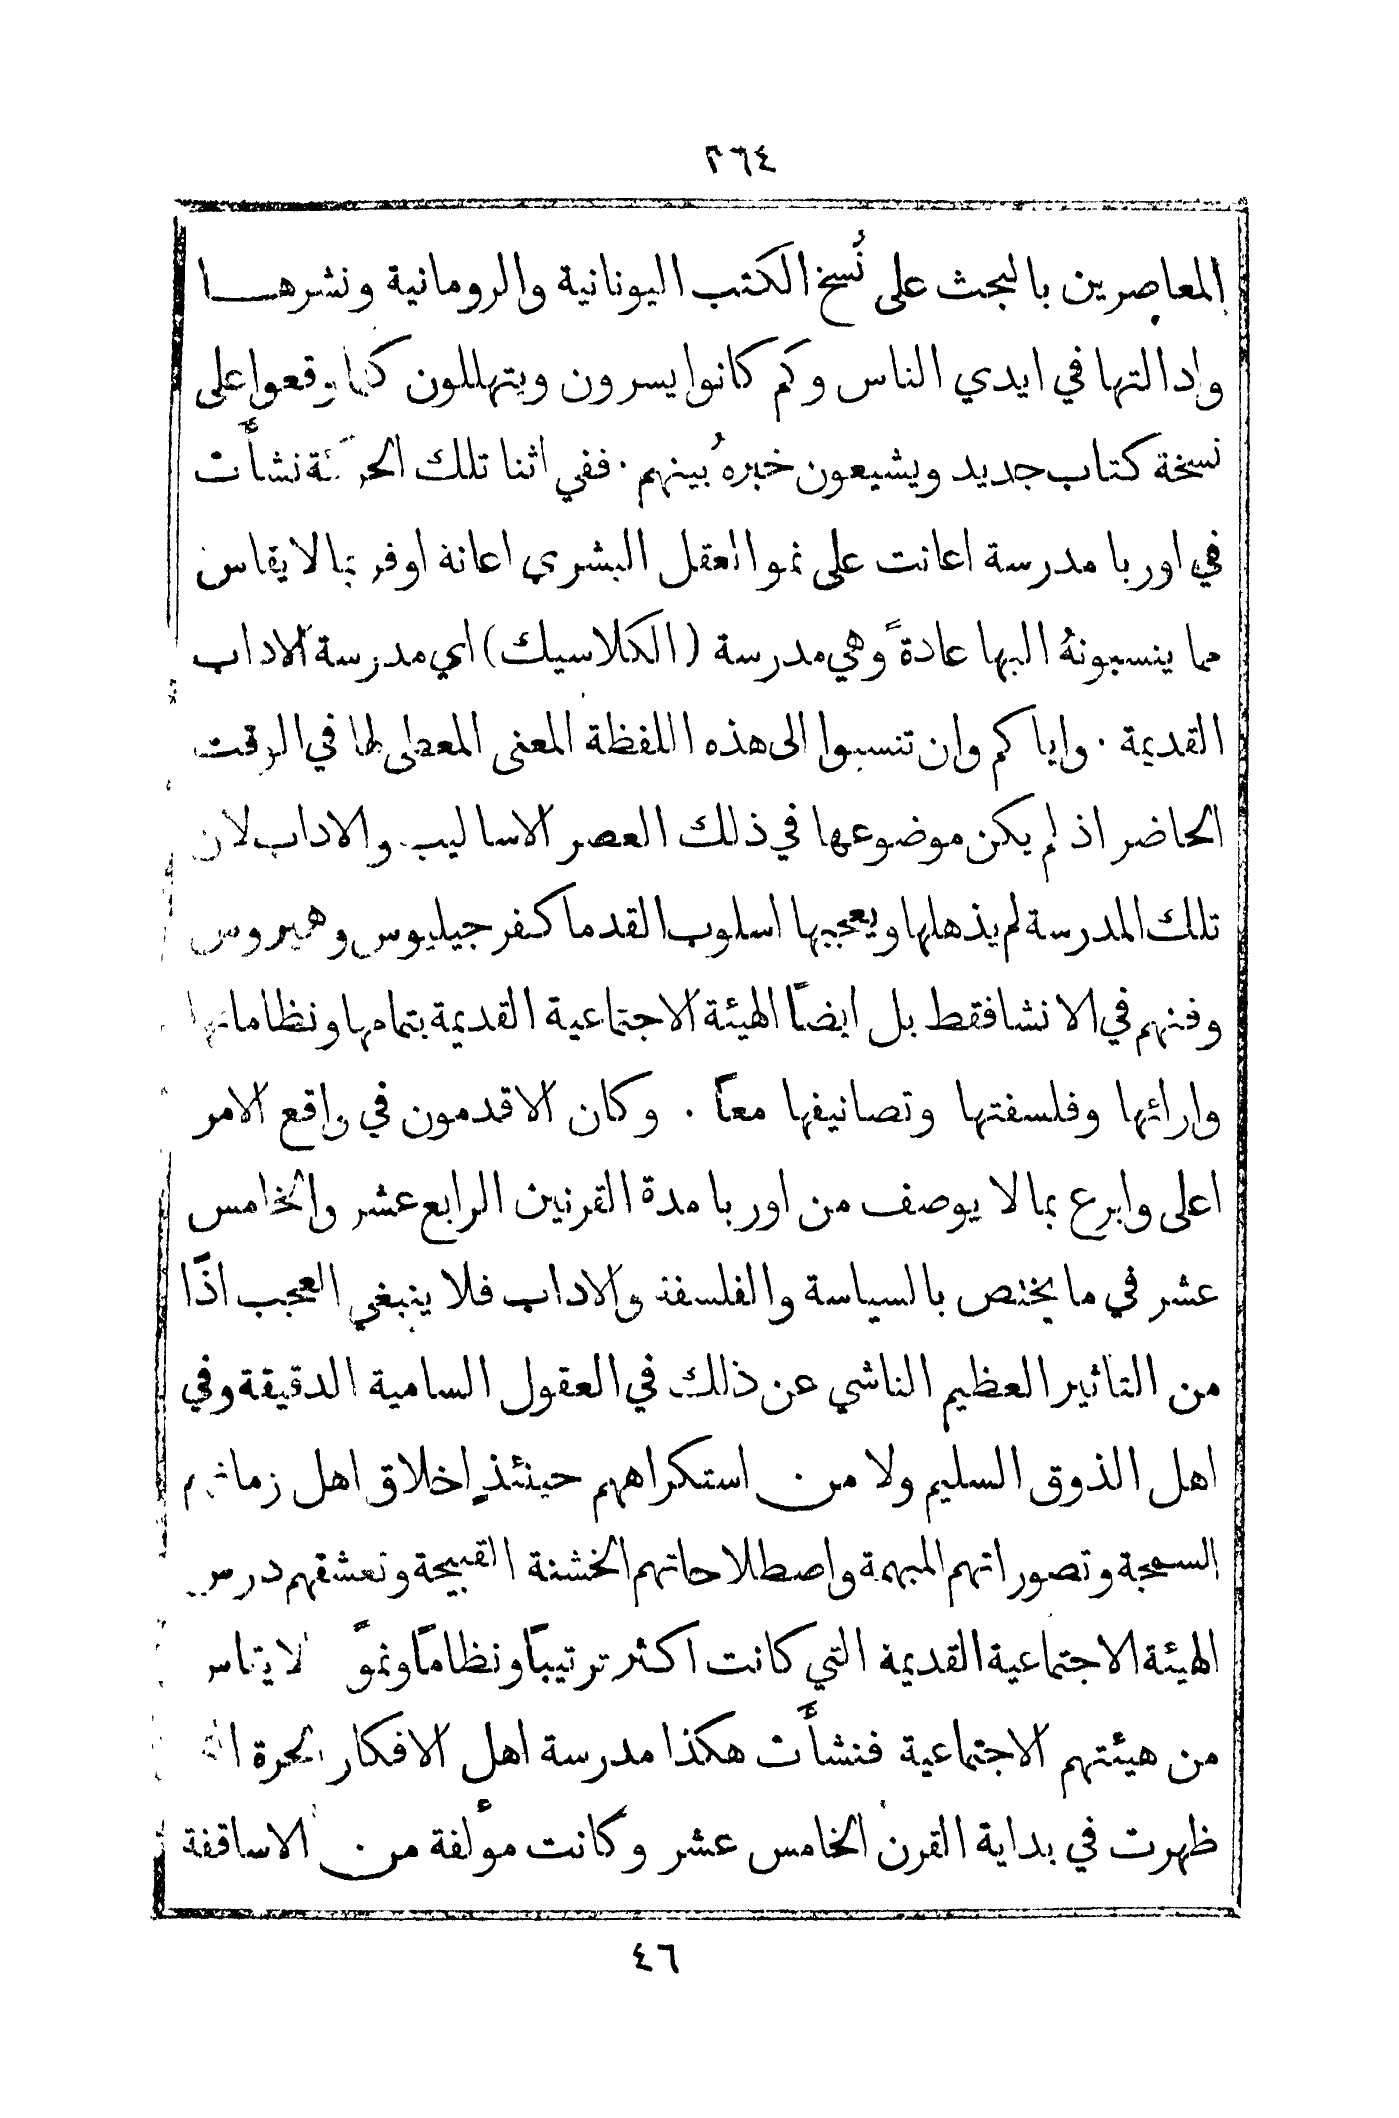 ٣٦٤
المعاصرين بالبحث على نُسخ الكتب اليونانية والرومانية ونشرهـــا
وادالتها في ايدي الناس وكم كانوا يسرون ويتهللون كلما وقعوا على
نسخة كتاب جديد ويشيعون خبرهُ بينهم . ففي اثنا تلك نشأت
في اوربا مدرسة اعانت على نمو العقل البشري اعانة اوفر بما لا يقاس
مما ينسبونهُ اليها عادةً وهي مدرسة (الكلاسيك) اي مدرسة الاداب
القديمة . واياكم وان تنسبوا الى هذه اللفظة المعنى المعطى لها في الوقت
الحاضر اذ لم يكن موضوعها في ذلك العصر الاساليب والاداب لان
تلك المدرسة لم يذهلها ويعجبها اسلوب القدما كفرجيليوس وهميروس
وفنهم في الانشا فقط بل ايضاً الهيئة الاجتماعية القديمة بتمامها ونظاماتها
وارائها وفلسفتها وتصانيفها معاً . وكان الاقدمون في واقع الامر
اعلى وابرع بما لا يوصف من اوربا مدة القرنين الرابع عشر والخامس
عشر في ما يختص بالسياسة والفلسفة والاداب فلا ينبغي العجب اذًا
من التاثير العظيم الناشي عن ذلك في العقول السامية الدقيقة وفي
اهل الذوق السليم ولا من استكراههم حينئذٍ اخلاق اهل زمانهم
السمجة وتصوراتهم المبهمة واصطلاحاتهم الخشنة القبيحة وتعشقهم درس
الهيئة الاجتماعية القديمة التي كانت اكثر ترتيباً ونظاماً ونموًّا لا يقاس
من هيئتهم الاجتماعية فنشأت هكذا مدرسة اهل الافكار الحرة التي
ظهرت في بداية القرن الخامس عشر وكانت مؤلفة من الاساقفة
٤٦